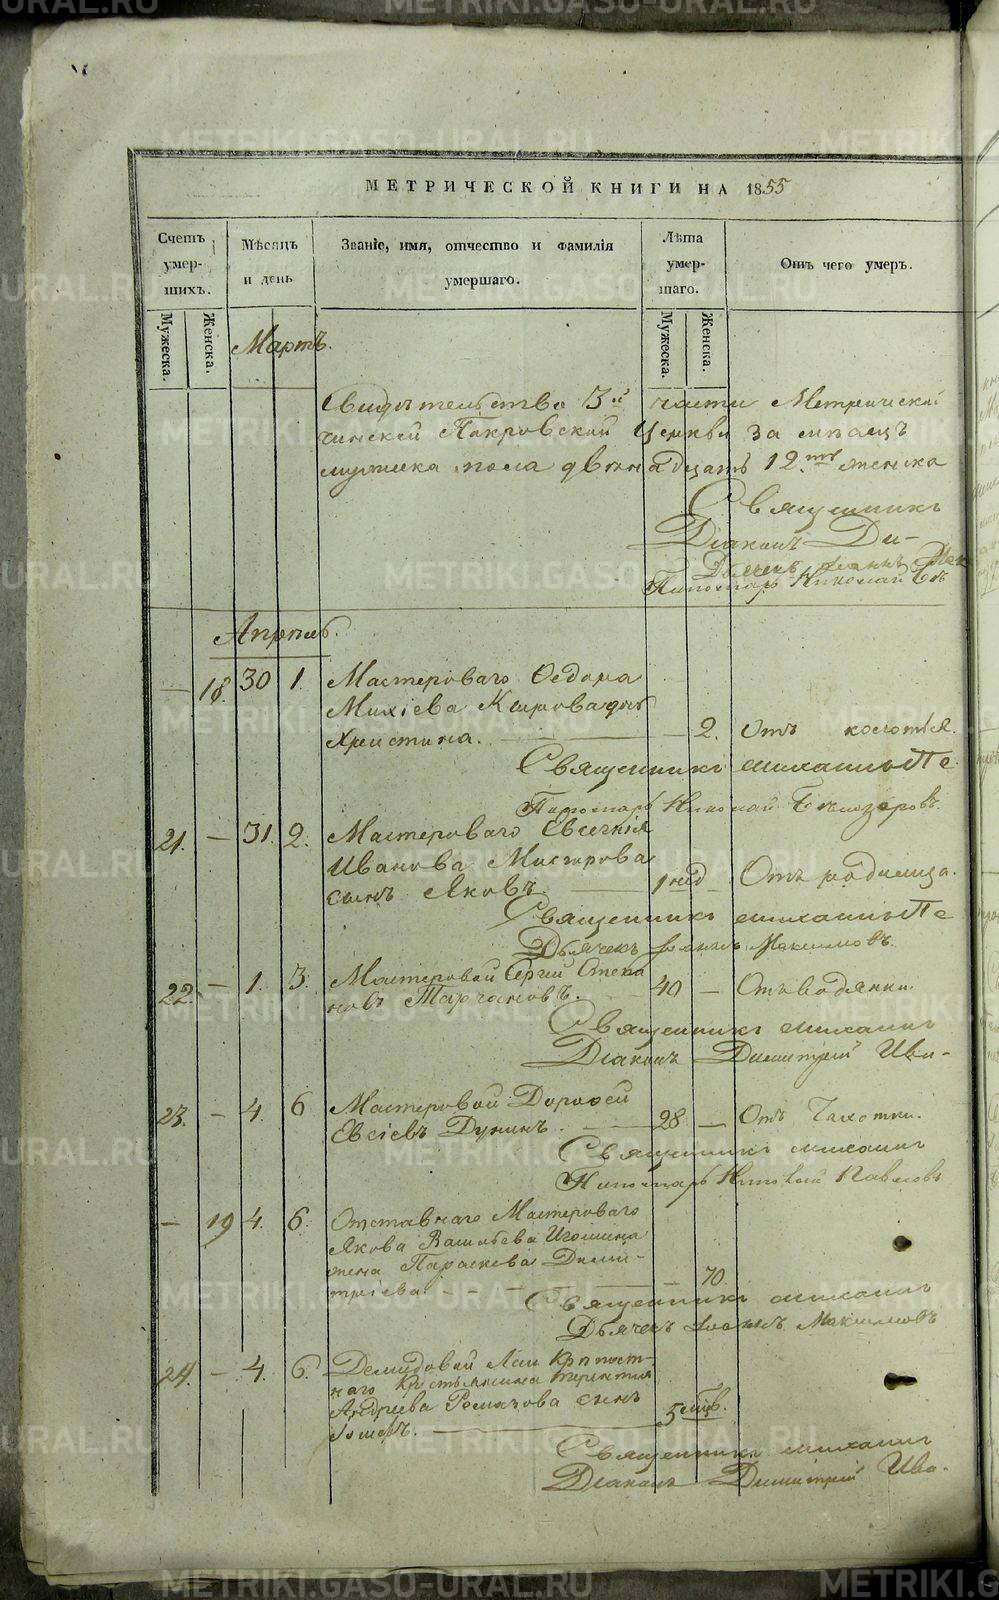 МЕТРИЧЕСКОЙ КНИГИ НА 1855
Счетъ умер-шихъ.
Мѣсяцъ и день
Званіе, имя, отчество и фамилія умершаго.
Лѣта умер-шаго.
Отъ чего умеръ.
Мужеска.
Женска.
Мужеска.
Женска.
Мартъ.
Свидѣтельство 3й части Метрической
чинской Покровской Церкви за мѣсяцъ
мужска пола двѣнадцать 12.ть женска
Священникъ
Діаконъ Ди-
Дьячекъ Іоаннъ Мак
Пономарь Николай Бѣ
Апрѣль.
— 18. 30 1. Мастероваго Ѳедора
Михіева дчь
Христина. — — 2. Отъ колотія.
Священникъ Михаилъ Пе
Пономарь Николай Бѣлозеровъ.
21. — 31. 2. Мастероваго Евсегнія
Иванова
сынъ Яковъ — 1 нед — Отъ родимца.
Священникъ Михаилъ Пе
Дьячекъ Іоаннъ Максимовъ.
22. — 1. 3. Мастеровой Сергій Степа
новъ Тарчановъ. — 40 — Отъ водянки.
Священникъ Михаилъ
Діаконъ Димитрій Ива-
23. — 4. 6 Мастеровой Дороѳей
Евсіевъ Дунинъ. — 28 — Отъ Чахотки.
Священникъ Михаилъ
Пономарь Николай Павловъ
— 19 4. 6. Отставнаго Мастероваго
Якова Васильева Игошина
жена Параскева Дими-
тріева. — — 70.
Священникъ Михаилъ
Дьячекъ Іоаннъ Максимовъ
24. — 4. 6. Демидовой Крѣпост-
наго Крестьянина Терентія
Андреева Ремезова сынъ
— 5 мѣс.
Священникъ Михаилъ
Діаконъ Димитрій Ива.
METRIKI.GASO-URAL.RU